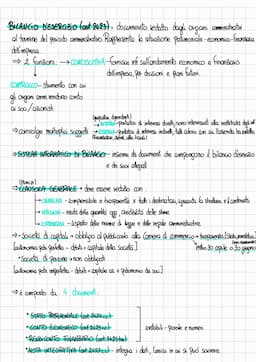 BILANCIO D'ESERCIZIO (art 2423) - documento redatto dagli organi amministrativi
al termine del periodo amministrativo. Rappresenta la situazione patrimoniale-economica-finanziaria
dell'impresa.
⇒ 2 funzioni → CONOSCITIVA - fornisce inf. sull'andamento economico e finanziario
dell'impresa, per decisioni e piani futuri.
CONTROLLO - strumento con cui
gli organi amm. rendono conto
ai soci / azionisti
⇒ coinvolge molteplici soggetti → INTERNI - portatori di interessi diretti, sono interessati alla
→ ESTERNI - portatori di interessi indiretti, tutti coloro con cui l'azienda ha
⇒ SISTEMA INFORMATIVO DI BILANCIO - insieme di documenti che compongono il bilancio d'esercizio
e dei suoi allegati
⇒ CLAUSOLA GENERALE - deve essere redatto con:
→ CHIAREZZA - comprensibile e trasparente x tutti i destinatari, riguarda la struttura e il contenuto
→ - risultati della quantità agg. credibilità delle stime
→ - rispetto delle norme di legge e delle regole amministrative.
⇒ Società di capitali → obbligo di pubblicarlo alla Camera di commercio e
[autonomia patr. perfetta - debiti → capitale della società] entro 30 aprile o 30 giugno
• Società di persone → non obbligati
[autonomia patr. imperfetta - debiti → capitale soc. + patrimonio dei soci]
⇒ è composto da 4 documenti:
• STATO PATRIMONIALE (art 2424 cc)
• CONTO ECONOMICO (art 2425 cc)
• RENDICONTO FINANZIARIO (art 2425 ter)
contabili - parole e numeri
• NOTA INTEGRATIVA (art 2427) - integra i dati, fornisce inf.